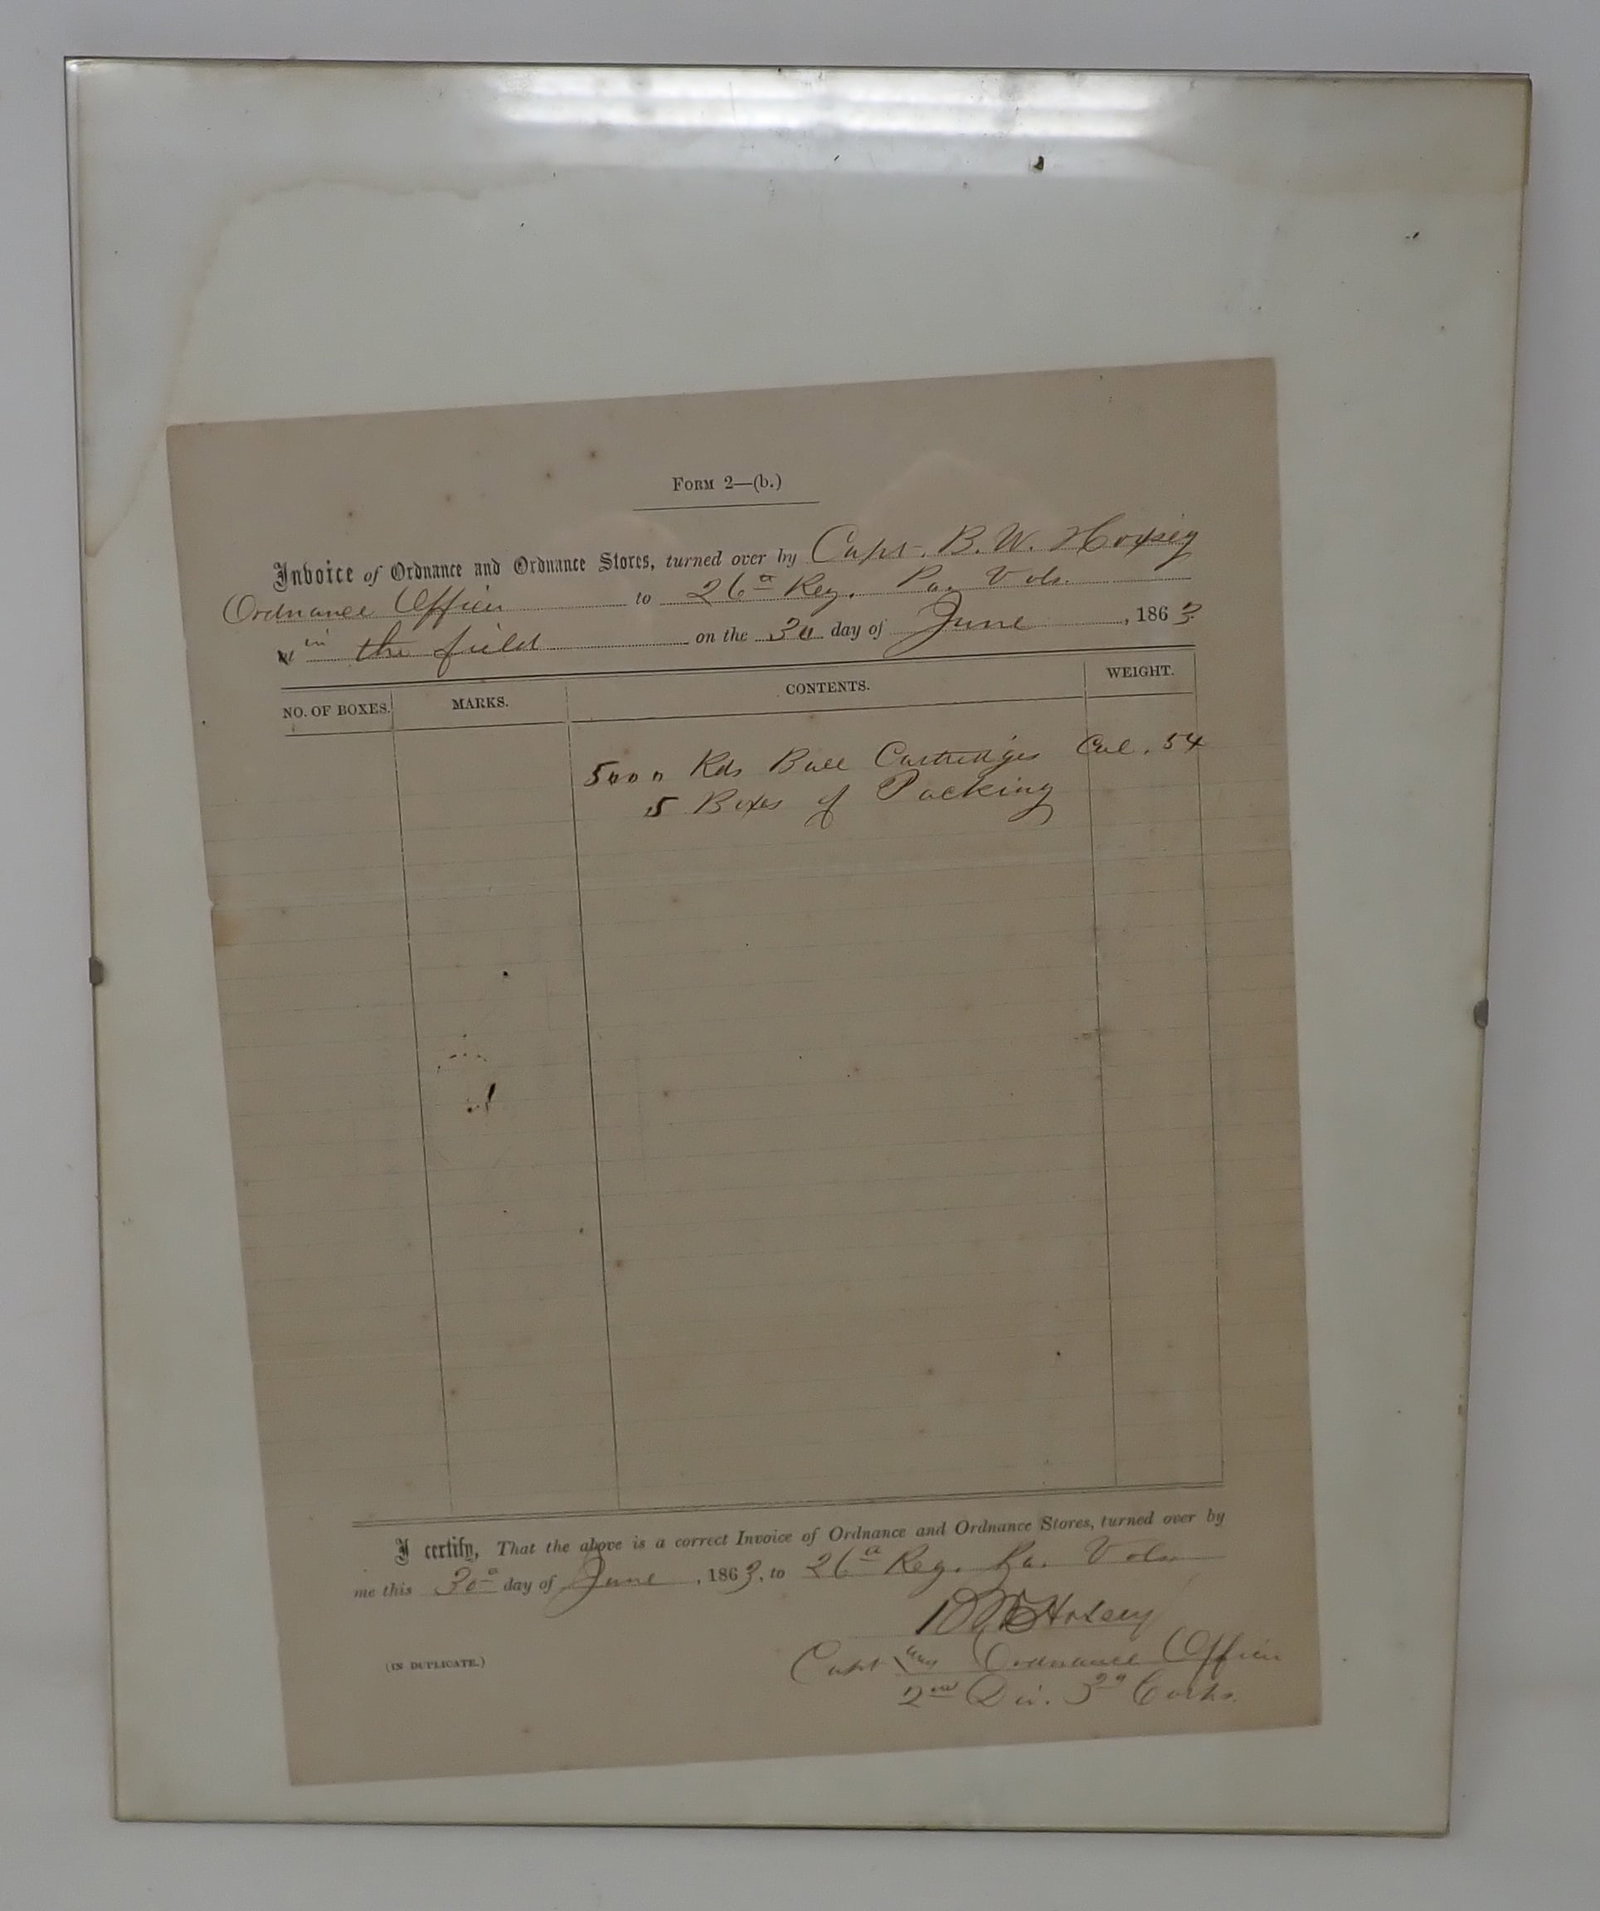 Form 2—(b.)
Invoice of Ordnance and Ordnance Stores, turned over by Capt. B. W. Hoxsey
Ordnance Officer to 26th Reg. Pa. Vols.
at in the field on the 30 day of June, 1863
NO. OF BOXES. MARKS. CONTENTS. WEIGHT.
5000 Rds Ball Cartridges Cal. 54
5 Boxes of Packing
I certify, That the above is a correct Invoice of Ordnance and Ordnance Stores, turned over by
me this 30th day of June, 1863, to 26th Reg. Pa. Vols
Hoxsey
Capt and Ordnance Officer
(IN DUPLICATE.)
2nd Div. 3rd Corps.